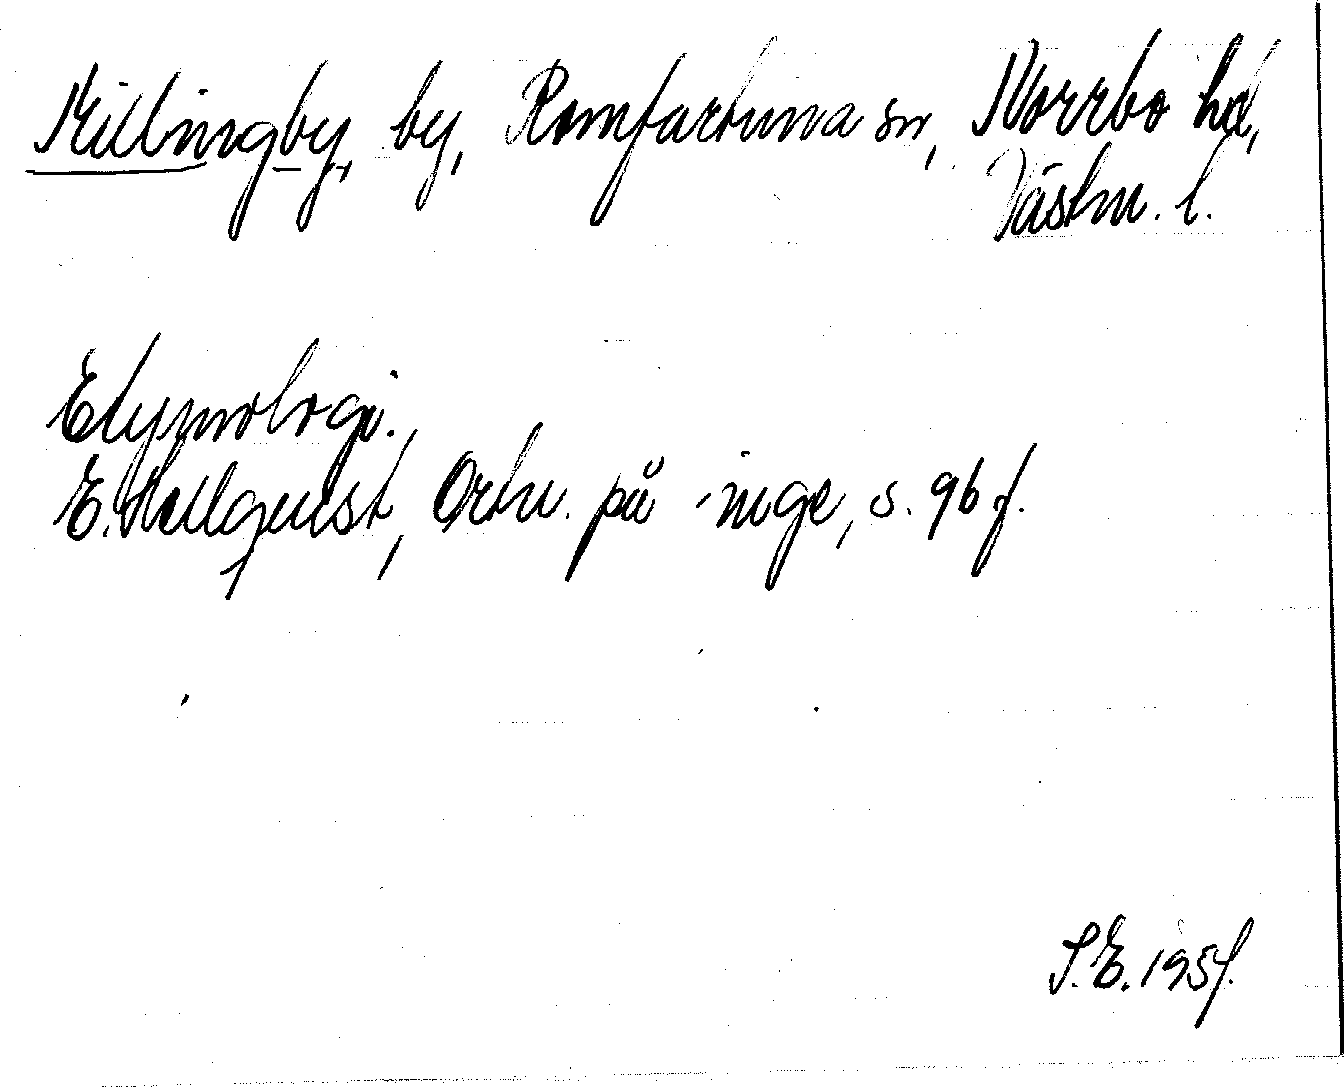 Killingby, by, Romfartuna sn, Norrbo hd,
Västm. l.
Etymologi.
E. Hellquist, Ortn. på -inge, s. 96 f.
S.E. 1951.